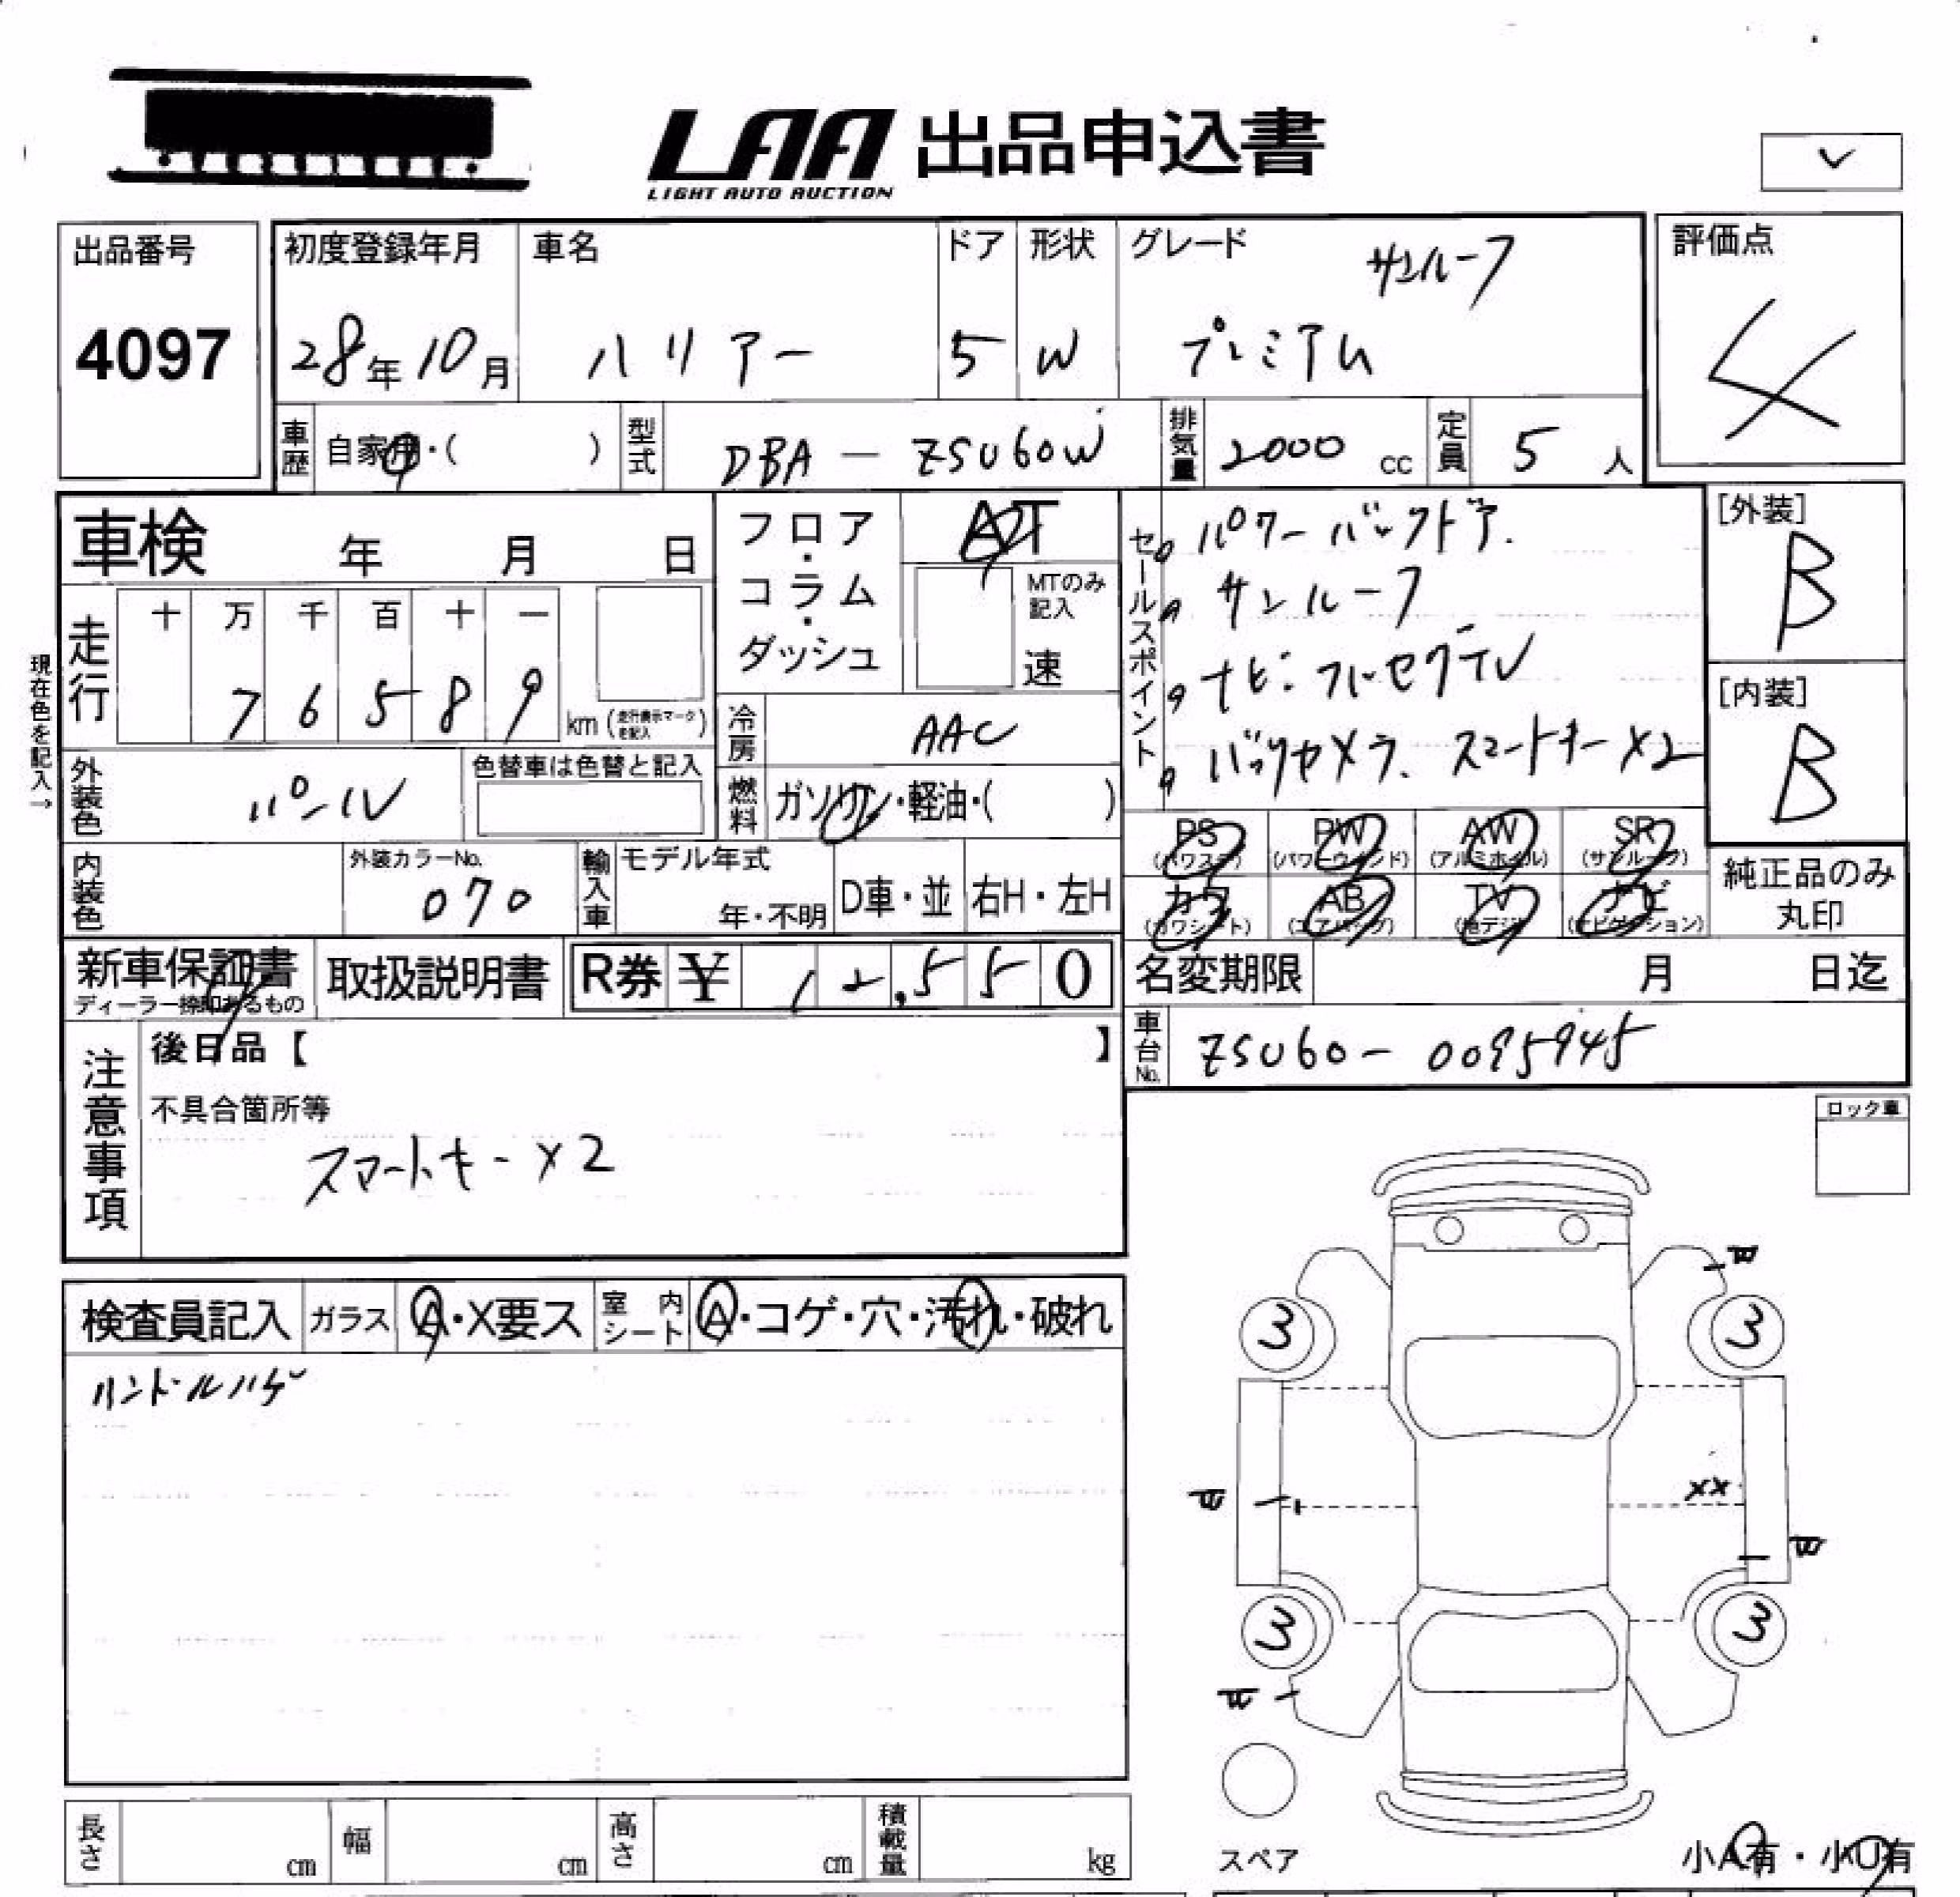 LAA 出品申込書
LIGHT AUTO AUCTION
出品番号
4097
初度登録年月
28年10月
車名
ハリアー
ドア
5
形状
W
グレード
サンルーフ
プレミアム
評価点
4
車歴
自家用・(　　)
型式
DBA-ZSU60W
排気量
2000 cc
定員
5 人
車検 年 月 日
フロア・コラム・ダッシュ
AT
MTのみ記入
速
セールスポイント
パワーバックドア.
サンルーフ
ナビ・フルセグTV
バックカメラ、スマートキー×2
[外装]
B
[内装]
B
現在色を記入→
走行
十 万 千 百 十 一
7 6 5 8 9
km (走行表示マークを記入)
冷房
AAC
外装色
パール
色替車は色替と記入
燃料
ガソリン・軽油・(　　)
PS (パワステ)
PW (パワーウィンド)
AW (アルミホイル)
SR (サンルーフ)
カワ (カワシート)
AB (エアバッグ)
TV (地デジ)
ナビ (ナビゲーション)
純正品のみ丸印
内装色
外装カラーNo.
070
輸入車
モデル年式
年・不明
D車・並
右H・左H
新車保証書
ディーラー捺印あるもの
取扱説明書
R券 ¥ 12,550
名変期限 月 日迄
車台No.
ZSU60-0095945
注意事項
後日品【　　】
不具合箇所等
スマートキー×2
ロック車
検査員記入
ガラス
A・X要ス
室内シート
A・コゲ・穴・汚れ・破れ
ハンドルハゲ
3
3
XX
3
3
スペア
小A有・小U有
長さ cm
幅 cm
高さ cm
積載量 kg